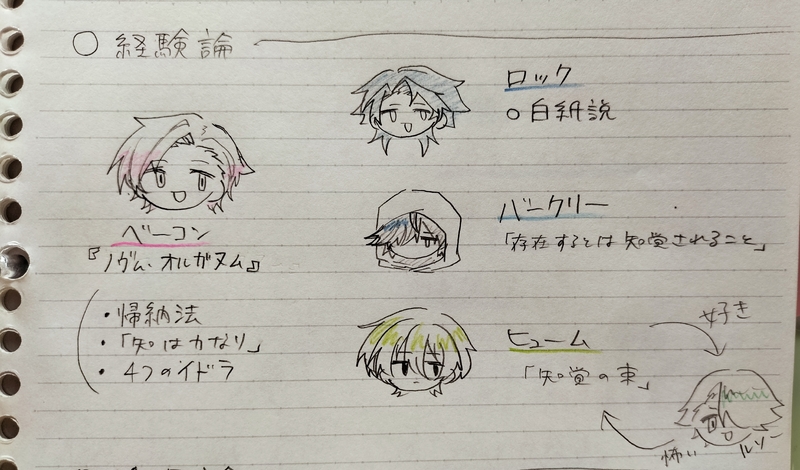 ○ 経験論
ベーコン
『ノヴム・オルガヌム』
・帰納法
・「知は力なり」
・4つのイドラ
ロック
○白紙説
バークリー
「存在するとは知覚されること」
ヒューム
「知覚の束」
好き
怖い
ルソー